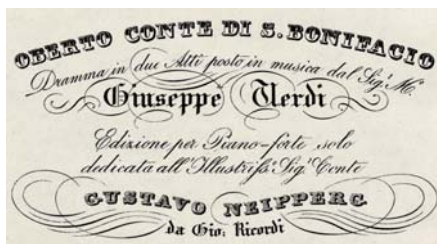 OBERTO CONTE DI S. BONIFACIO
Dramma in due Atti posto in musica dal Sig.r M.o
Giuseppe Verdi
Edizione per Piano-forte solo
dedicata all'Illustriss.o Sig.r Conte
GUSTAVO NEIPPERG
da Gio: Ricordi